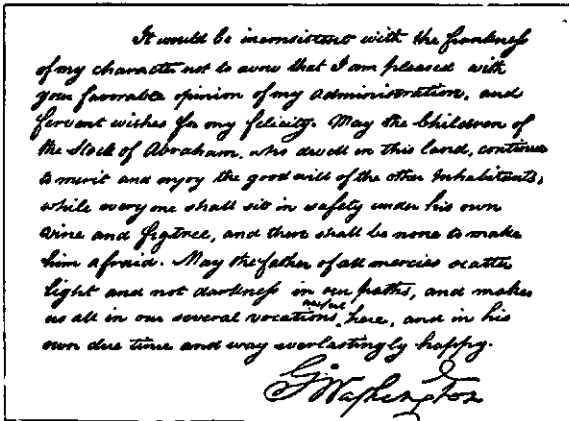 It would be inconsistent with the frankness
of my character not to avow that I am pleased with
your favorable opinion of my administration, and
fervent wishes for my felicity. May the Children of
the Stock of Abraham, who dwell in this land, continue
to merit and enjoy the good will of the other Inhabitants,
while every one shall sit in safety under his own
vine and figtree, and there shall be none to make
him afraid. May the father of all mercies scatter
light and not darkness in our paths, and make
us all in our several vocations useful here, and in his
own due time and way everlastingly happy.
G. Washington